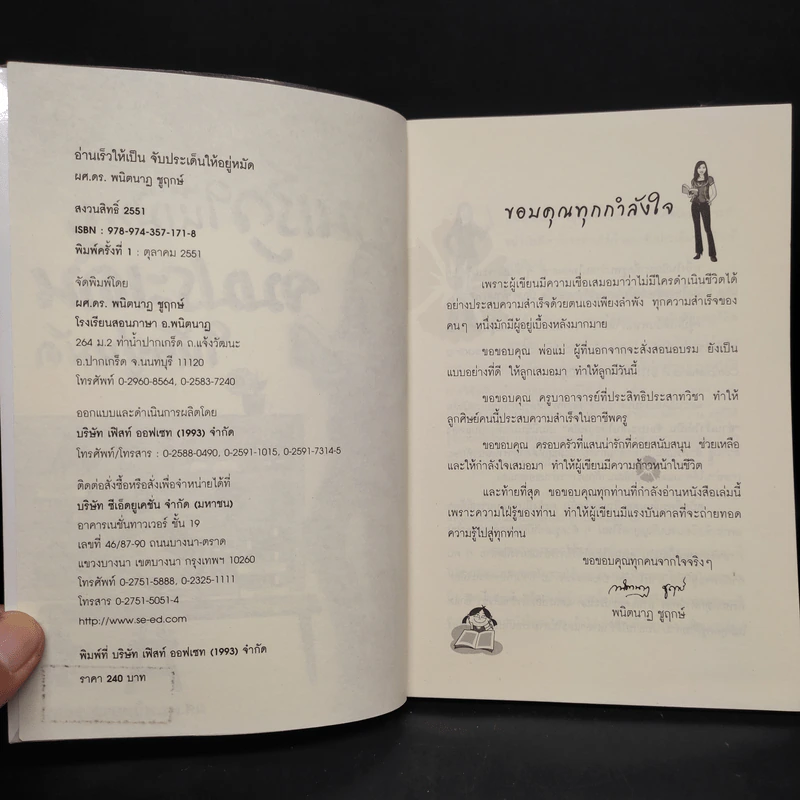 อ่านเร็วให้เป็น จับประเด็นให้อยู่หมัด
ผศ.ดร. พนิตนาฏ ชูฤกษ์
สงวนสิทธิ์ 2551
ISBN : 978-974-357-171-8
พิมพ์ครั้งที่ 1 : ตุลาคม 2551
จัดพิมพ์โดย
ผศ.ดร. พนิตนาฏ ชูฤกษ์
โรงเรียนสอนภาษา อ.พนิตนาฏ
264 ม.2 ท่าน้ำปากเกร็ด ถ.แจ้งวัฒนะ
อ.ปากเกร็ด จ.นนทบุรี 11120
โทรศัพท์ 0-2960-8564, 0-2583-7240
ออกแบบและดำเนินการผลิตโดย
บริษัท เฟิสท์ ออฟเซท (1993) จำกัด
โทรศัพท์/โทรสาร : 0-2588-0490, 0-2591-1015, 0-2591-7314-5
ติดต่อสั่งซื้อหรือสั่งเพื่อจำหน่ายได้ที่
บริษัท ซีเอ็ดยูเคชั่น จำกัด (มหาชน)
อาคารเนชั่นทาวเวอร์ ชั้น 19
เลขที่ 46/87-90 ถนนบางนา-ตราด
แขวงบางนา เขตบางนา กรุงเทพฯ 10260
โทรศัพท์ 0-2751-5888, 0-2325-1111
โทรสาร 0-2751-5051-4
http://www.se-ed.com
พิมพ์ที่ บริษัท เฟิสท์ ออฟเซท (1993) จำกัด
ราคา 240 บาท
ขอบคุณทุกกำลังใจ
เพราะผู้เขียนมีความเชื่อเสมอมาว่าไม่มีใครดำเนินชีวิตได้
อย่างประสบความสำเร็จด้วยตนเองเพียงลำพัง ทุกความสำเร็จของ
คนๆ หนึ่งมักมีผู้อยู่เบื้องหลังมากมาย
ขอขอบคุณ พ่อแม่ ผู้ที่นอกจากจะสั่งสอนอบรม ยังเป็น
แบบอย่างที่ดี ให้ลูกเสมอมา ทำให้ลูกมีวันนี้
ขอขอบคุณ ครูบาอาจารย์ที่ประสิทธิประสาทวิชา ทำให้
ลูกศิษย์คนนี้ประสบความสำเร็จในอาชีพครู
ขอขอบคุณ ครอบครัวที่แสนน่ารักที่คอยสนับสนุน ช่วยเหลือ
และให้กำลังใจเสมอมา ทำให้ผู้เขียนมีความก้าวหน้าในชีวิต
และท้ายที่สุด ขอขอบคุณทุกท่านที่กำลังอ่านหนังสือเล่มนี้
เพราะความใฝ่รู้ของท่าน ทำให้ผู้เขียนมีแรงบันดาลที่จะถ่ายทอด
ความรู้ไปสู่ทุกท่าน
ขอขอบคุณทุกคนจากใจจริงๆ
พนิตนาฏ ชูฤกษ์
พนิตนาฏ ชูฤกษ์